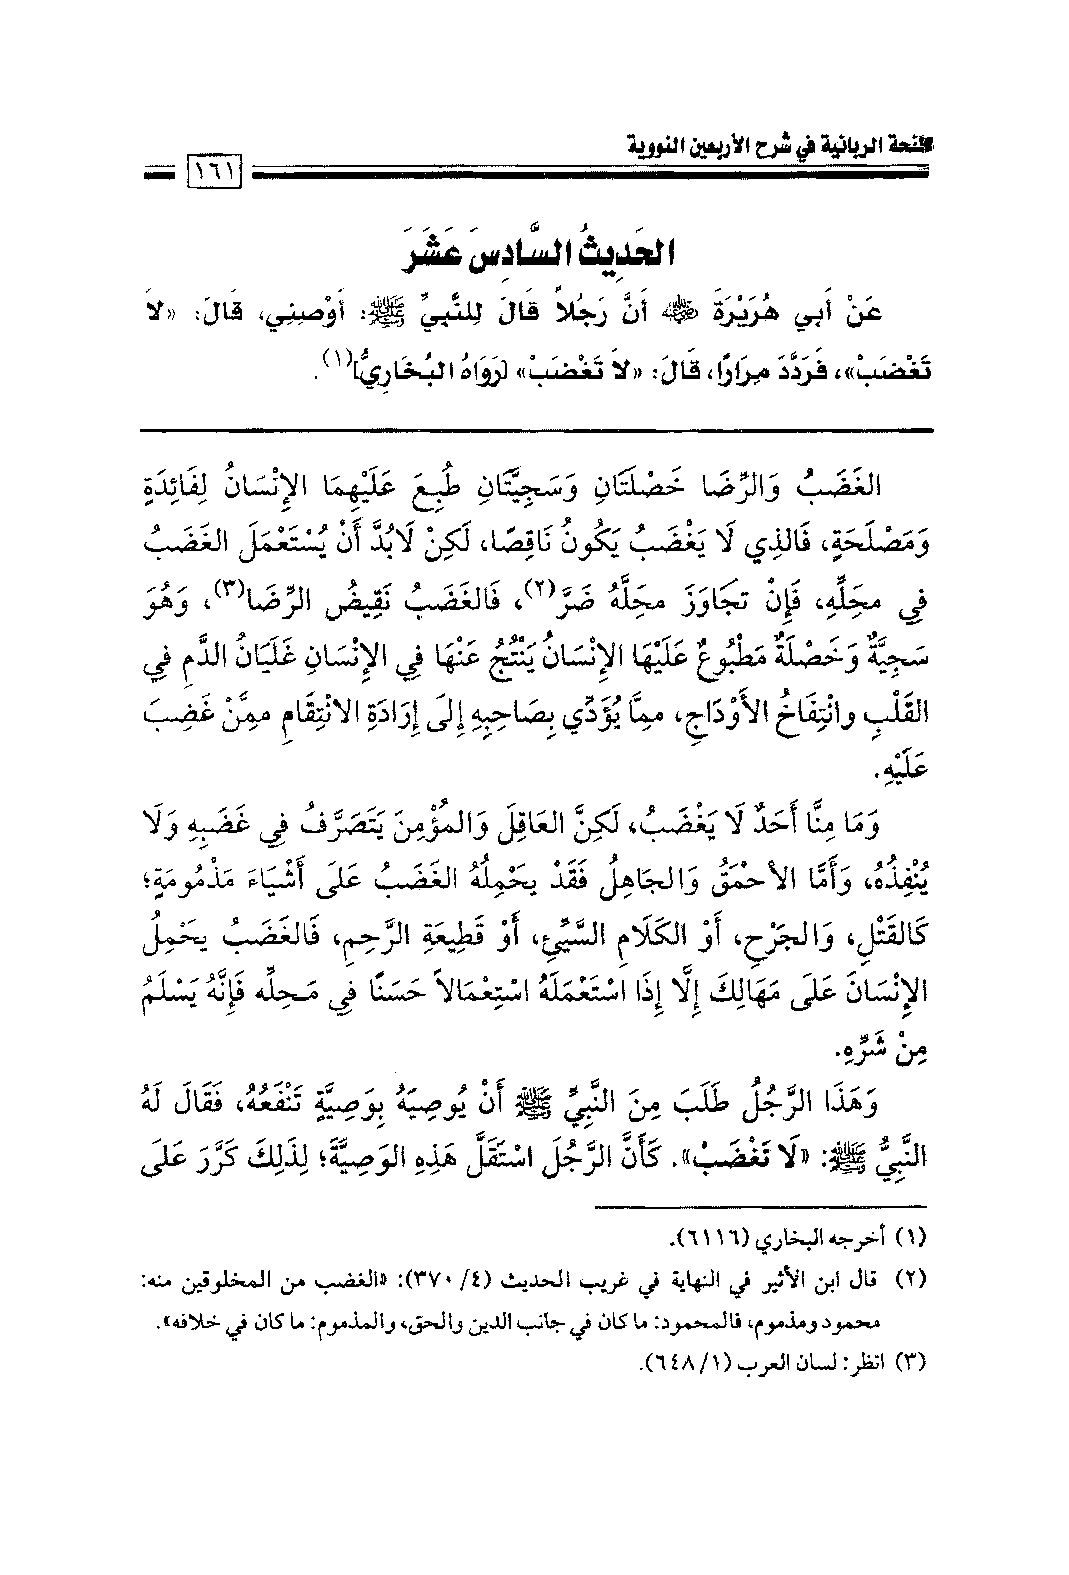 المنحة الربانية في شرح الأربعين النووية
١٦١
الحَدِيثُ السَّادِسَ عَشَرَ
عَنْ أَبِي هُرَيْرَةَ ﵁ أَنَّ رَجُلاً قَالَ لِلنَّبِيِّ ﷺ: أَوْصِنِي، قَالَ: «لاَ
تَغْضَبْ»، فَرَدَّدَ مِرَارًا، قَالَ: «لاَ تَغْضَبْ» [رَوَاهُ البُخَارِيُّ](١).
الغَضَبُ وَالرِّضَا خَصْلَتَانِ وَسَجِيَّتَانِ طُبِعَ عَلَيْهِمَا الإِنْسَانُ لِفَائِدَةٍ
وَمَصْلَحَةٍ، فَالذِي لَا يَغْضَبُ يَكُونُ نَاقِصًا، لَكِنْ لَابُدَّ أَنْ يُسْتَعْمَلَ الغَضَبُ
فِي مَحِلِّهِ، فَإِنْ تَجَاوَزَ مَحِلَّهُ ضَرَّ(٢)، فَالغَضَبُ نَقِيضُ الرِّضَا(٣)، وَهُوَ
سَجِيَّةٌ وَخَصْلَةٌ مَطْبُوعٌ عَلَيْهَا الإِنْسَانُ يَنْتُجُ عَنْهَا فِي الإِنْسَانِ غَلَيَانُ الدَّمِ فِي
القَلْبِ وانْتِفَاخُ الأَوْدَاجِ، مِمَّا يُؤَدِّي بِصَاحِبِهِ إِلَى إِرَادَةِ الانْتِقَامِ مِمَّنْ غَضِبَ
عَلَيْهِ.
وَمَا مِنَّا أَحَدٌ لَا يَغْضَبُ، لَكِنَّ العَاقِلَ وَالمُؤْمِنَ يَتَصَرَّفُ فِي غَضَبِهِ وَلَا
يُنْفِذُهُ، وَأَمَّا الأَحْمَقُ وَالجَاهِلُ فَقَدْ يَحْمِلُهُ الغَضَبُ عَلَى أَشْيَاءَ مَذْمُومَةٍ؛
كَالقَتْلِ، وَالجَرْحِ، أَوْ الكَلَامِ السَّيِّئِ، أَوْ قَطِيعَةِ الرَّحِمِ، فَالغَضَبُ يَحْمِلُ
الإِنْسَانَ عَلَى مَهَالِكَ إِلَّا إِذَا اسْتَعْمَلَهُ اسْتِعْمَالاً حَسَنًا فِي مَحِلِّه فَإِنَّهُ يَسْلَمُ
مِنْ شَرِّهِ.
وَهَذَا الرَّجُلُ طَلَبَ مِنَ النَّبِيِّ ﷺ أَنْ يُوصِيَهُ بِوَصِيَّةٍ تَنْفَعُهُ، فَقَالَ لَهُ
النَّبِيُّ ﷺ: «لَا تَغْضَبْ». كَأَنَّ الرَّجُلَ اسْتَقَلَّ هَذِهِ الوَصِيَّةَ؛ لِذَلِكَ كَرَّرَ عَلَى
(١) أخرجه البخاري (٦١١٦).
(٢) قال ابن الأثير في النهاية في غريب الحديث (٤/ ٣٧٠): «الغضب من المخلوقين منه:
محمود ومذموم، فالمحمود: ما كان في جانب الدين والحق، والمذموم: ما كان في خلافه».
(٣) انظر: لسان العرب (١/ ٦٤٨).